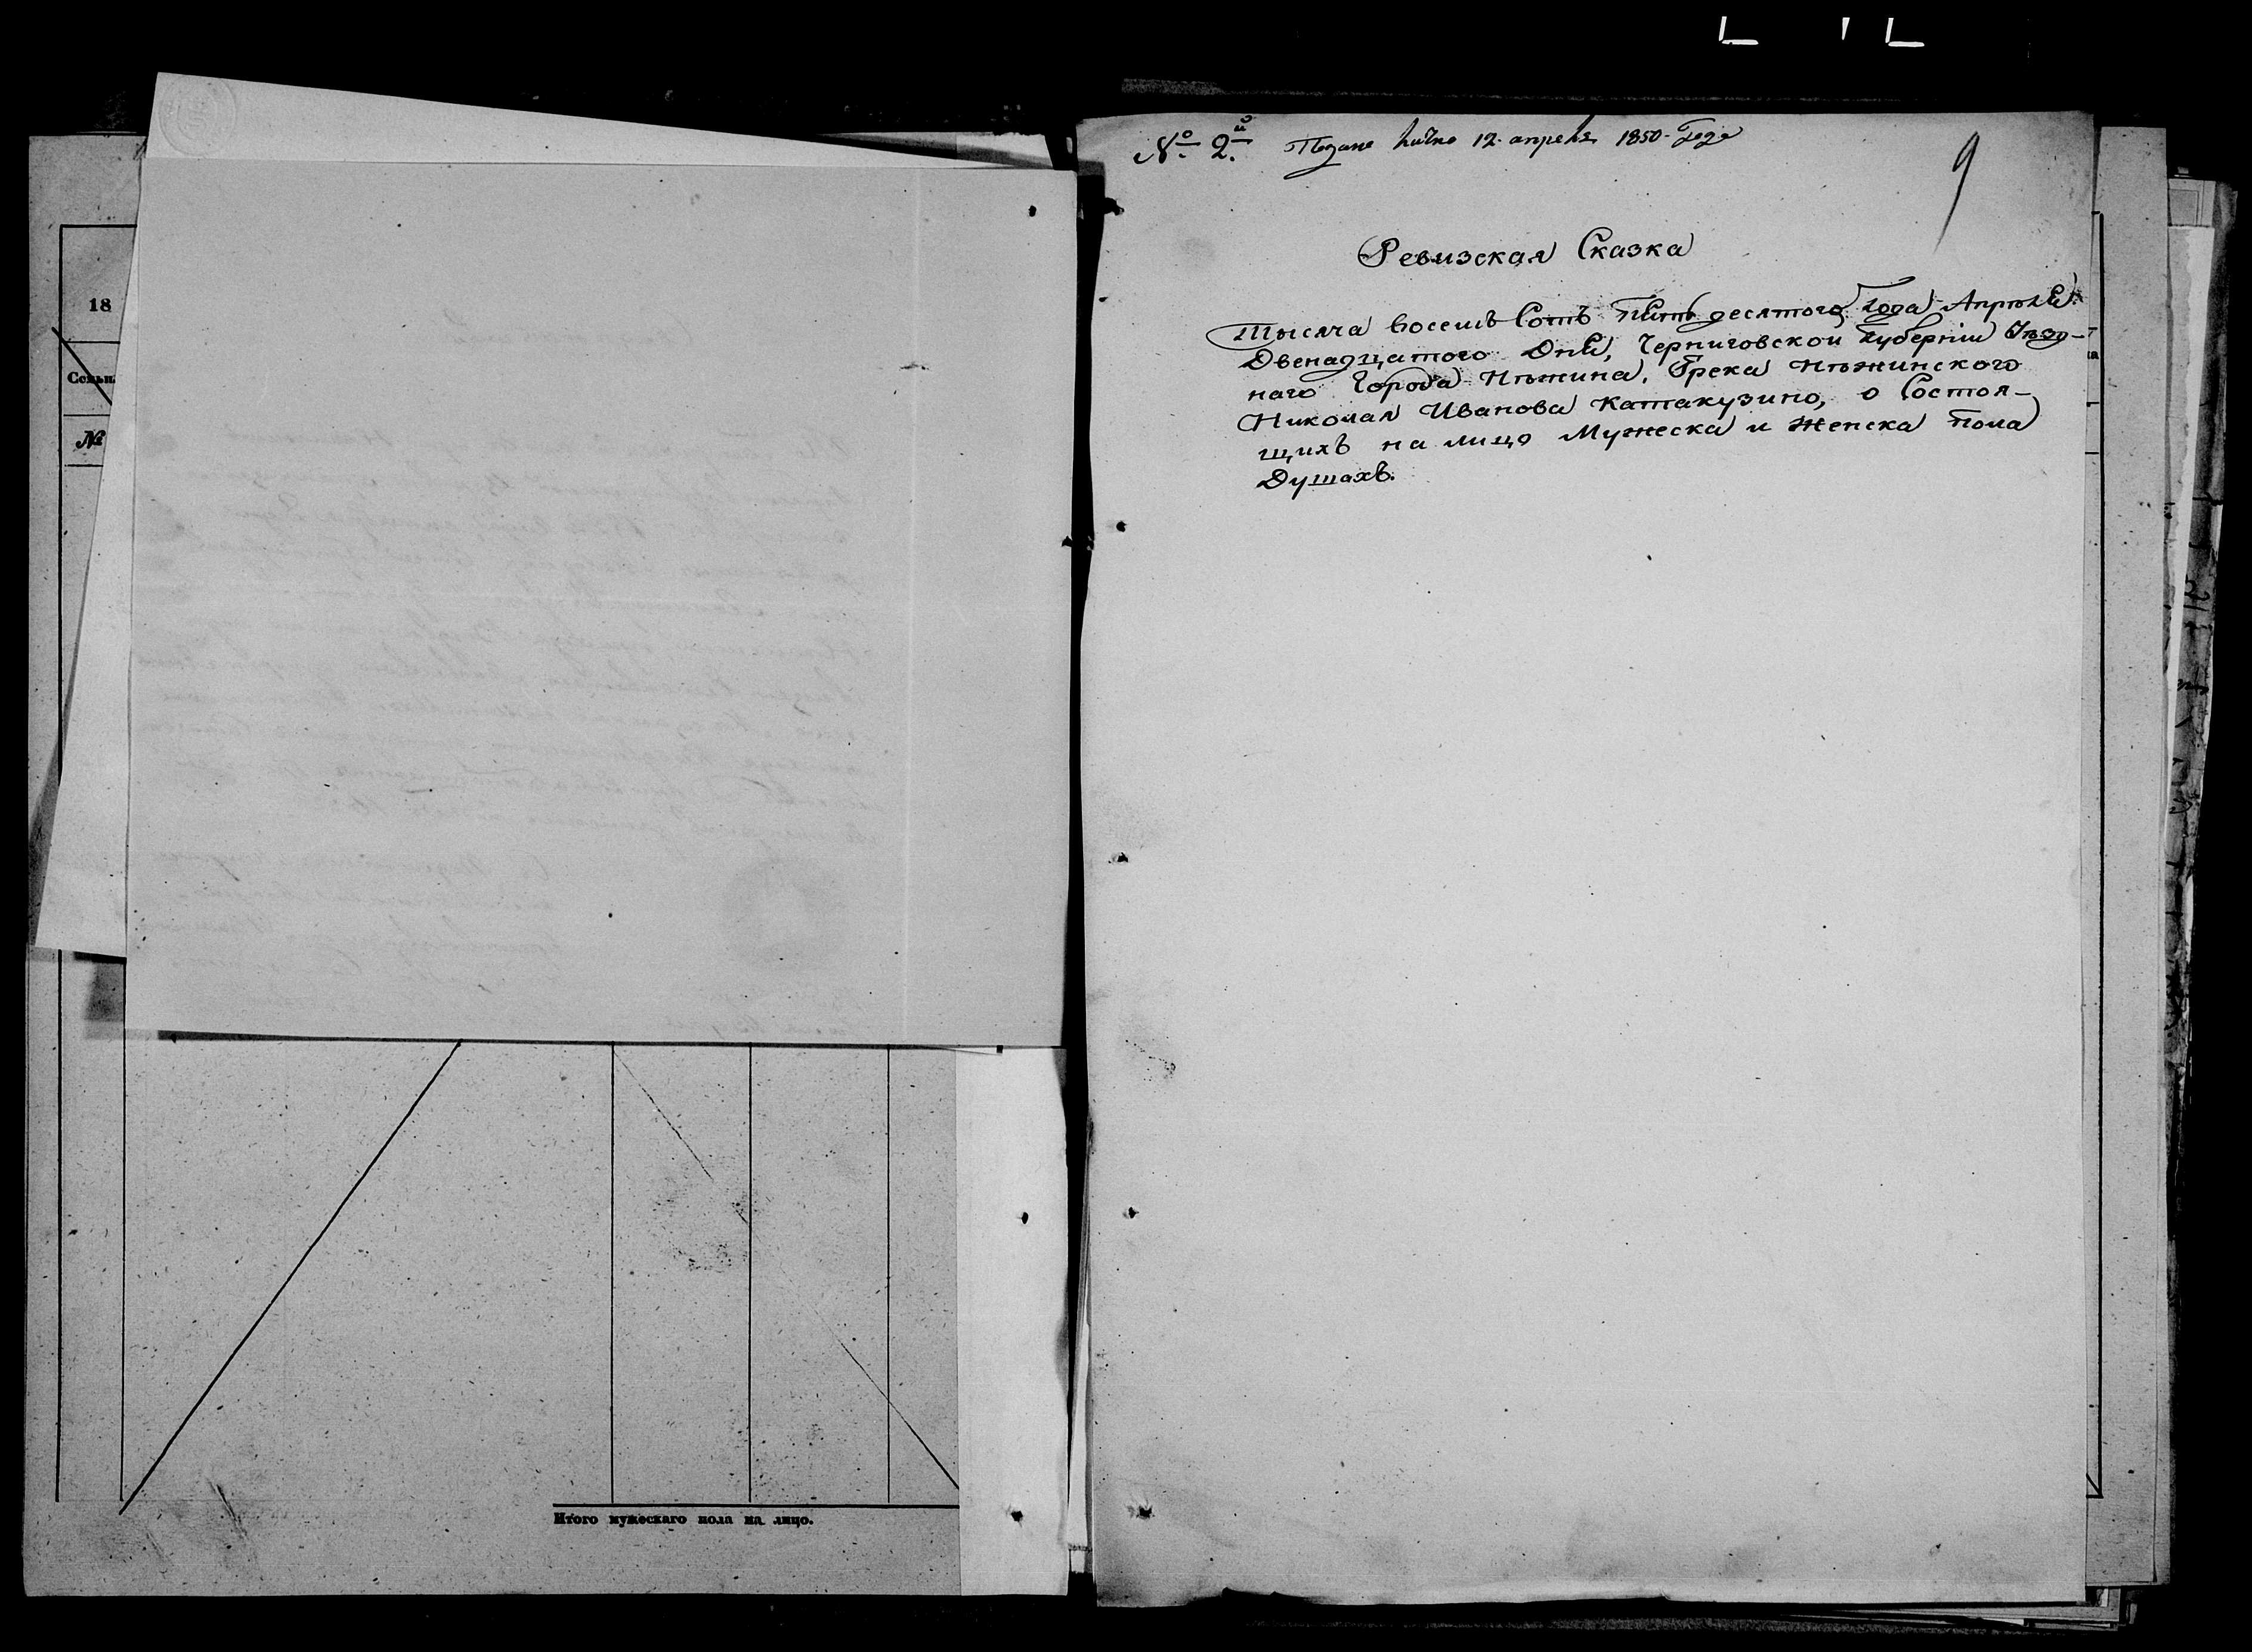 18
Сельн
№
Итого мужескаго пола на лицо.
№ 2й Подана лично 12. апреля 1850- Года
9
Ревизская Сказка
Тысяча восемь Сотъ пятьдесятого Года Апреля
Двенадцатого Дня, Черниговской Губерніи Уезд-
наго Города Нѣжина, Грека Нѣжинского
Николая Иванова Катакузино, о Состоя-
щихъ на лицо Мужеска и Женска пола
Душахъ.